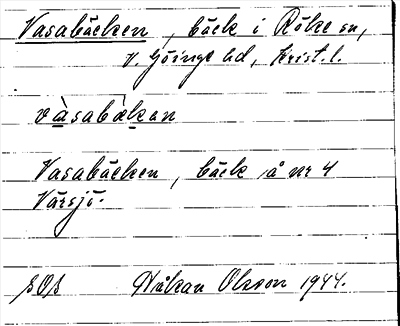 Vasabäcken, bäck i Röke sn,
V. Göinge hd, Krist. l.
vàsabäkan
Vasabäcken, bäck å nr 4
Värsjö.
Håkan Olsson 1944.